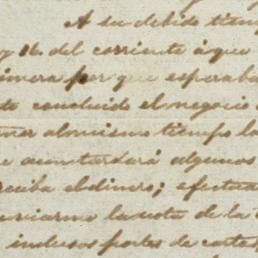 A su debido tiemp
y 16. del corriente á que
imera por que esperaba
to concluido el negocio
ner al mismo tiempo la
e acon tardará algunos
reciba el dinero; efectua
viarme la nota de la
inclusos portes de cartas